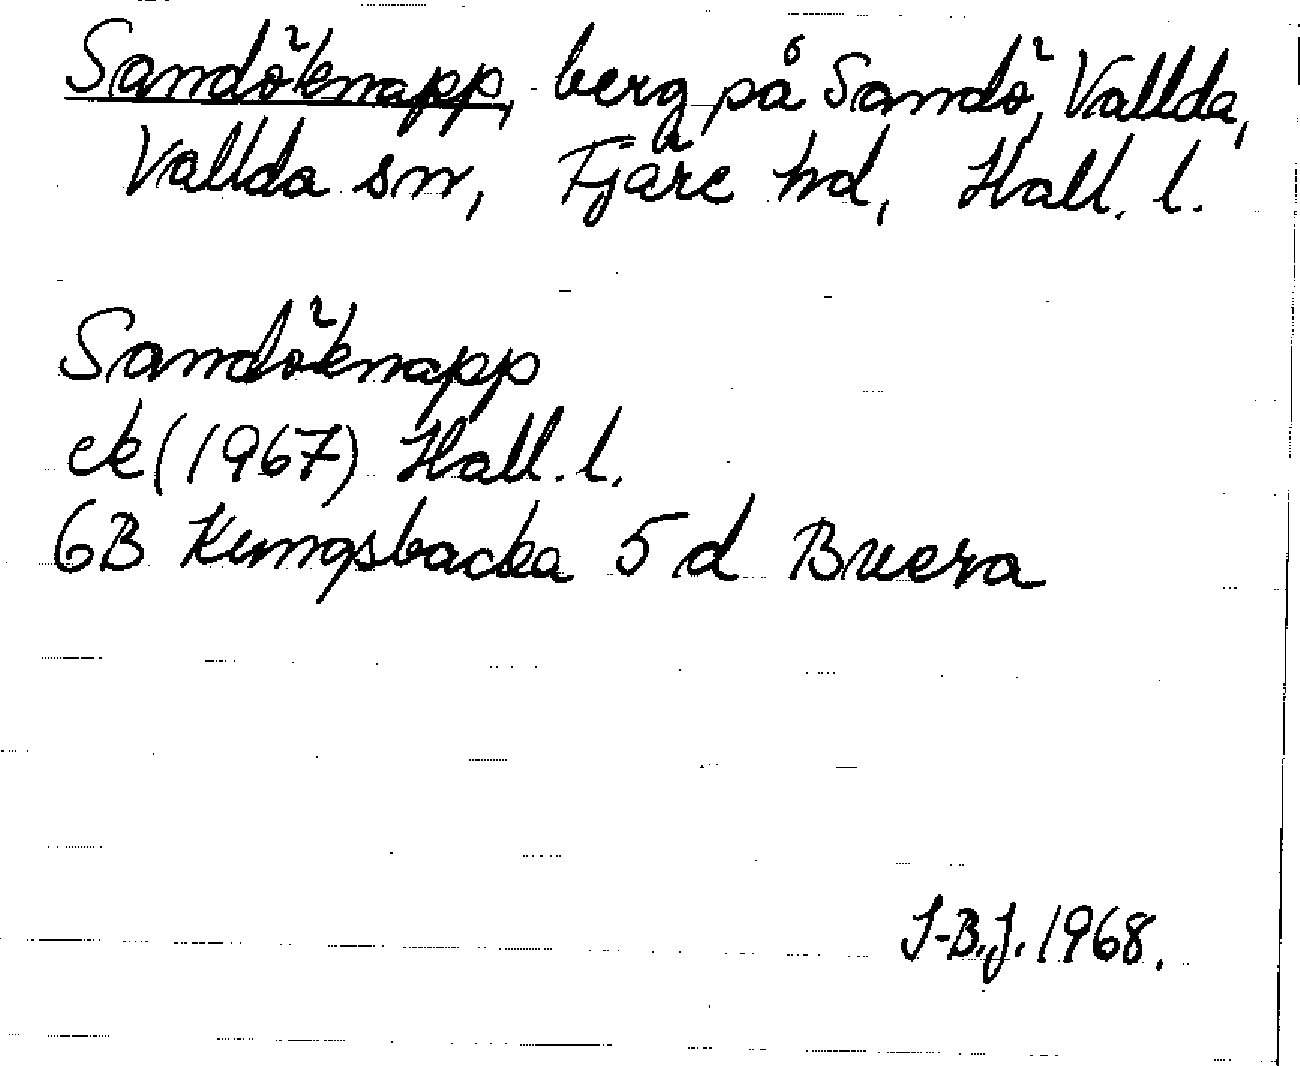 Sandöknapp, berg på Sandö, Vallda,
Vallda sn, Fjäre hd, Hall. l.
Sandöknapp
ek (1967) Hall. l.
6B Kungsbacka 5 d Buera
I-B.J. 1968.